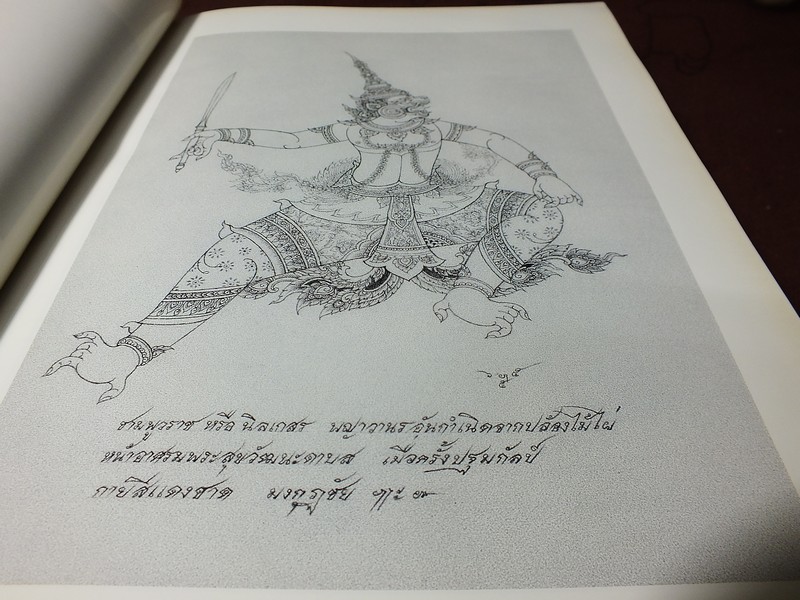 ชามภูวราช หรือ นิลเกสร พญาวานร อุ้นกำเนิดจากปล้องไม้ไผ่
หน้าอาศรมพระสุขวัฒนะดาบส เมื่อครั้งปฐมกัลป์
กายสีแดงชาด มงกุฎชัย